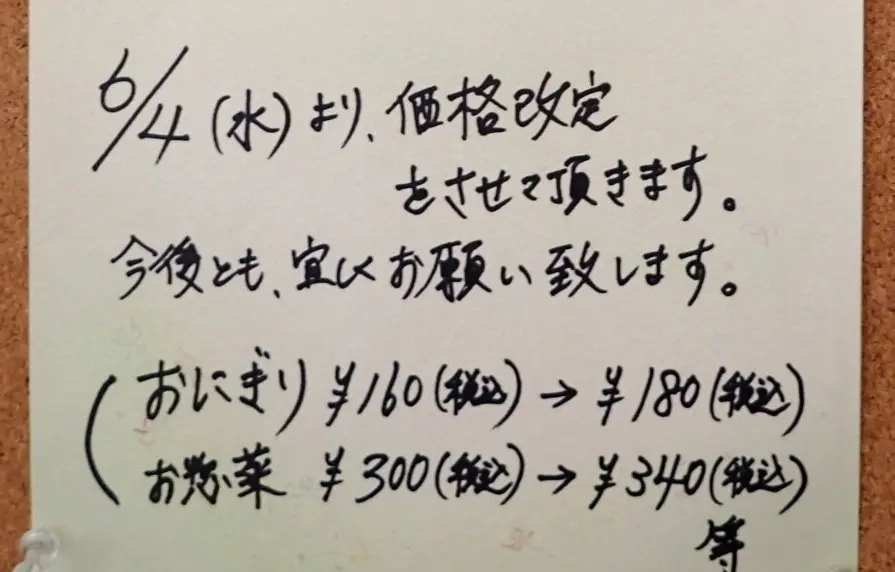 6/4(水)より、価格改定
をさせて頂きます。
今後とも、宜しくお願い致します。
(おにぎり ¥160(税込)→¥180(税込)
お惣菜 ¥300(税込)→¥340(税込)
等